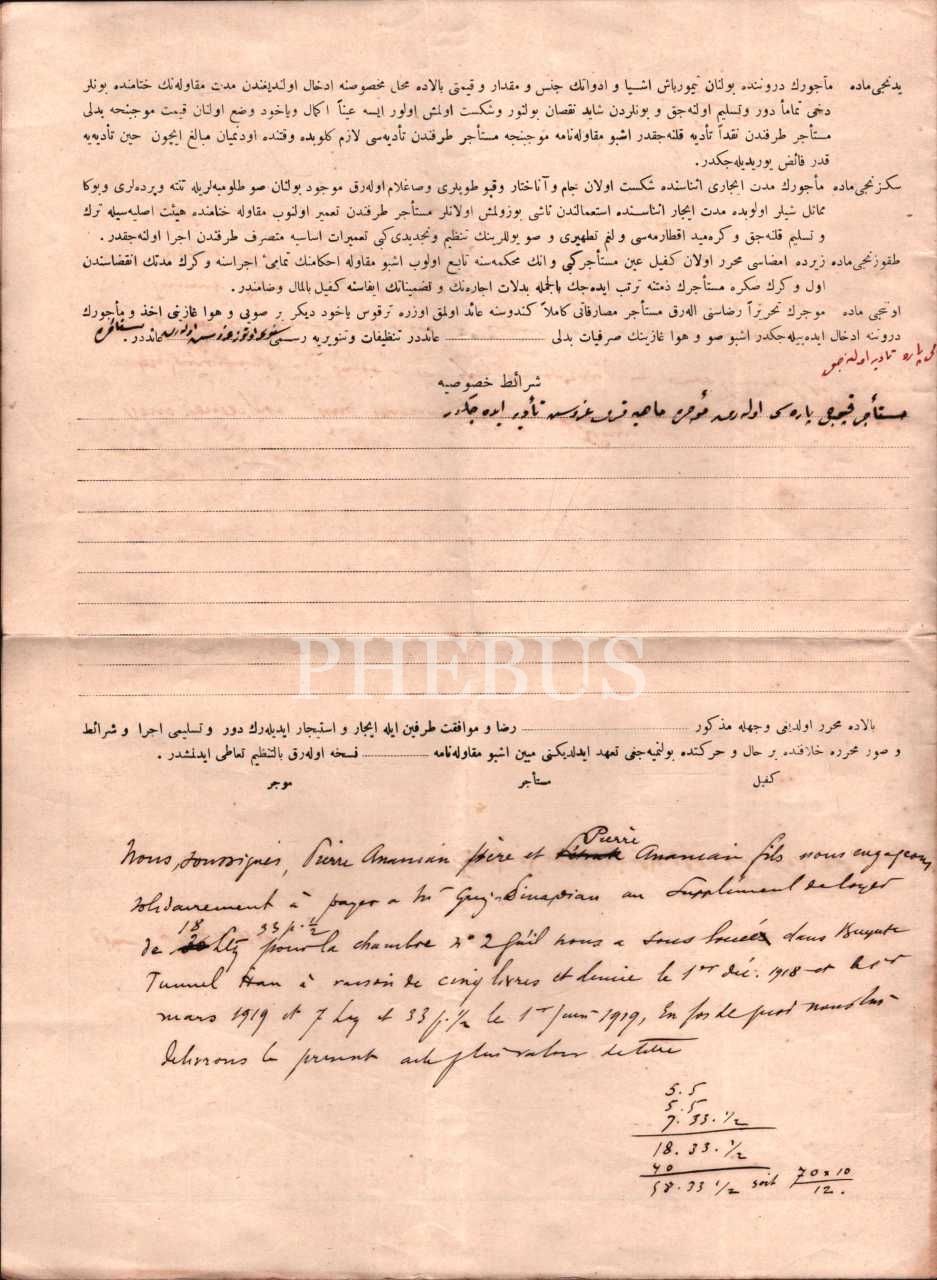 يدنجى ماده مأجورك دروننده بولنان تيمورباش اشيا و ادواتك جنس و مقدار و قيمتى بالاده محل مخصوصنه ادخال اولنديغندن مدت مقاوله‌نك ختامنده بونلر
دخى تماماً دور و تسليم اولنه‌جق و بونلردن شايد نقصان بولنور و شكست اولمش اولور ايسه عيناً اكمال وياخود وضع اولنان قيمت موجبنجه بدلى
مستأجر طرفندن نقداً تأديه قلنه‌جقدر اشبو مقاوله‌نامه موجبنجه مستأجر طرفندن تأديه‌سى لازم كلوبده وقتنده اودنميان مبالغ ايچون حين تأديه‌يه
قدر فائض يوريديله‌جكدر.
سكزنجى ماده مأجورك مدت ايجارى اثناسنده شكست اولان جام و آناختار وقپو طوپلرى وصاغلام اوله‌رق موجود بولنان صو طلومبه‌لريله تنته و پرده‌لرى وبوكا
مماثل شيلر اولوبده مدت ايجار اثناسنده استعمالندن ناشى بوزولمش اولانلر مستأجر طرفندن تعمير اولنوب مقاوله ختامنده هيئت اصليه‌سيله ترك
و تسليم قلنه‌جق و كره‌ميد اقطارمه‌سى و لغم تطهيرى و صو يوللرينك تنظيم وتجديدى كبى تعميرات اساسيه متصرف طرفندن اجرا اولنه‌جقدر.
طقوزنجى ماده زيرده امضاسى محرر اولان كفيل عين مستأجركبى وانك محكمه‌سنه تابع اولوب اشبو مقاوله احكامنك تمامىٔ اجراسنه وكرك مدتك انقضاسندن
اول و كرك صكره مستأجرك ذمتنه ترتب ايده‌جك بالجمله بدلات اجاره‌نك و تضميناتك ايفاسنه كفيل بالمال وضامندر.
اونجى ماده موجرك تحريراً رضاسنى اله‌رق مستأجر مصارفاتى كاملاً كندوسنه عائد اولمق اوزره ترقوس ياخود ديكر بر صويى و هوا غازينى اخذ و مأجورك
دروننه ادخال ايده‌بيله‌جكدر اشبو صو و هوا غازينك صرفيات بدلى عائددر تنظيفات وتنويريه رسمى عائددر.
پاره تأديه اوله‌جق
شرائط خصوصيه
مستأجر قپوجى پاره‌سى اوله‌رق موجره ماهيه غروش تأديه ايده‌جكدر
PHEBUS
بالاده محرر اولديغى وجهله مذكور رضا و موافقت طرفين ايله ايجار و استيجار ايديله‌رك دور و تسليمى اجرا و شرائط
و صور محرره خلافنده بر حال و حركتده بولنميه‌جغى تعهد ايدلديكنى مبين اشبو مقاوله‌نامه نسخه اوله‌رق بالتنظيم تعاطى ايدلمشدر.
كفيل مستأجر موجر
Nous, soussignés, Pierre Ananian père et Pierre Ananian fils nous engageons
solidairement à payer a Mr Grég. Dinapian au supplément de loyer
de 18 Ltq 33 p. 1/2 pour la chambre n° 2 qu'il nous a sous louée dans Buyuk
Tunnel Han à raison de cinq livres et demie le 1er déc. 1918 et le 1er
mars 1919 et 7 Ltq et 33 p. 1/2 le 1er juin 1919, En foi de quoi nous lui
délivrons le présent acte pour valoir de titre
5.5
5.5
7.33.1/2
18.33.1/2
40
58.33 1/2 soit 70 x 10
12.